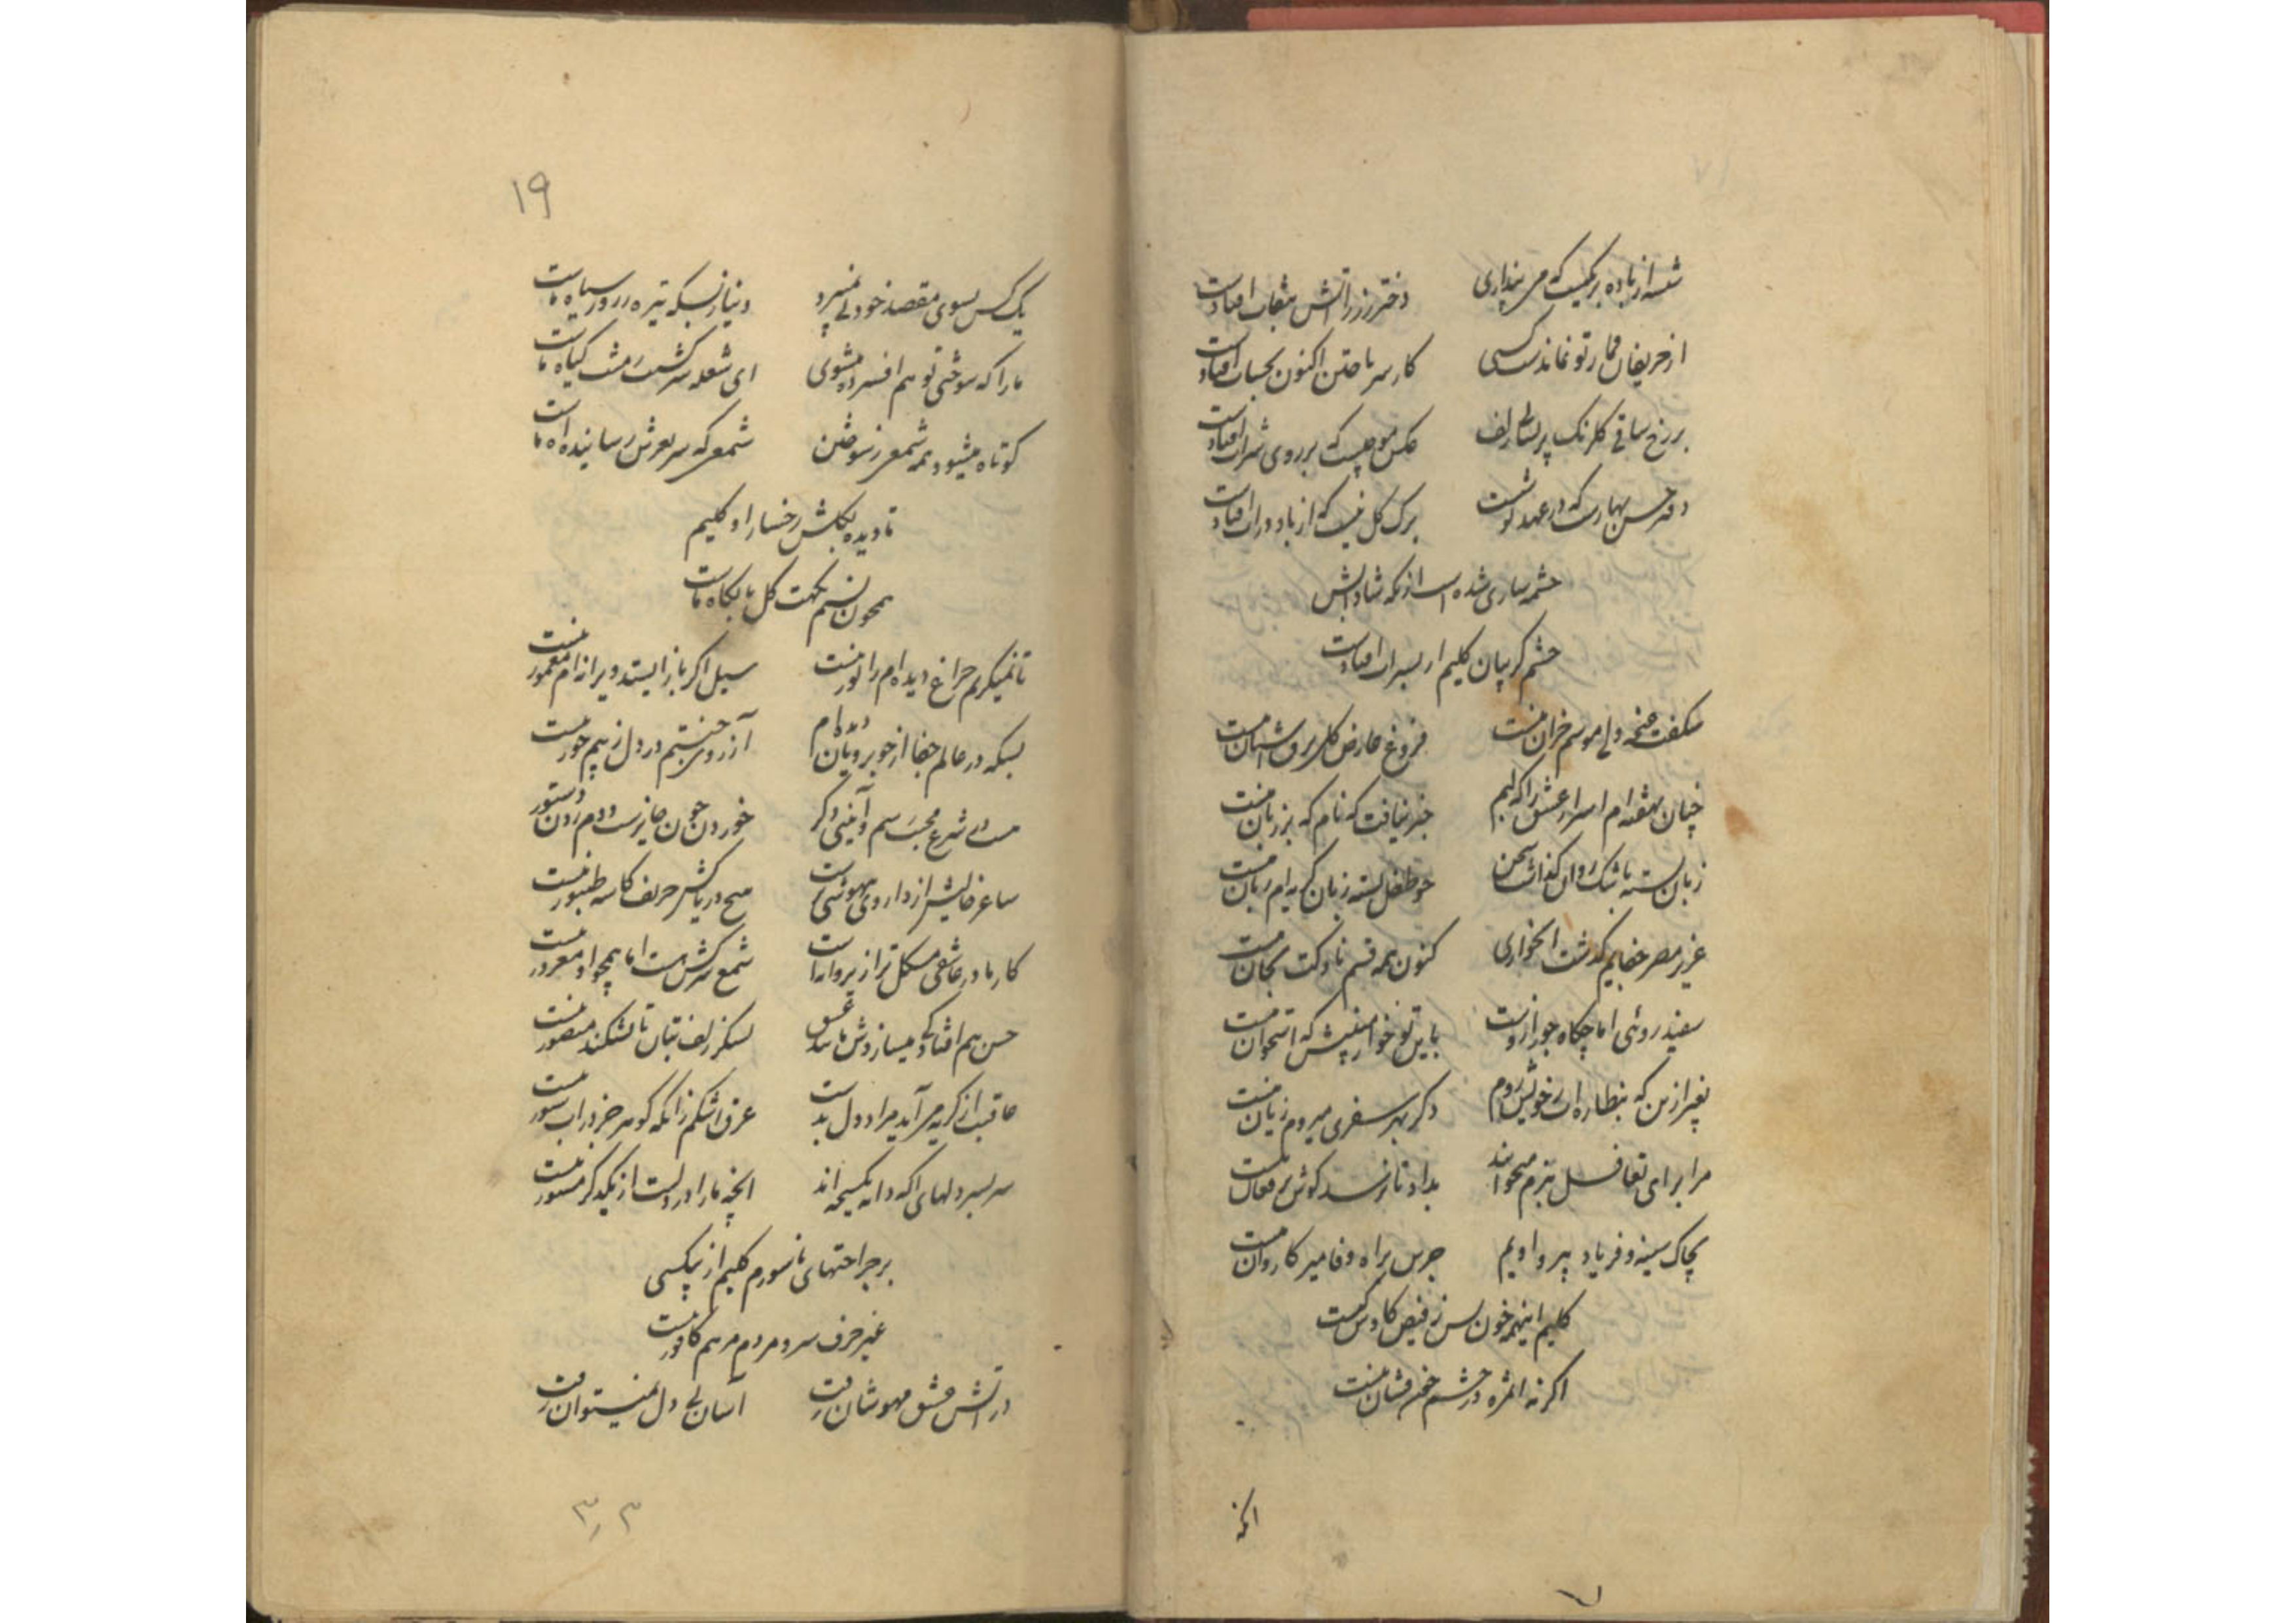 شیشه از باده پر کیست که می پنداری دختر رز ز آتش بنقاب افتادست
از حریفان قمار تو نماندست کسی کار سر باختن اکنون بحساب افتادست
بر رخ ساقی گلرنگ پریشان زلف عکس موجیست که بر روی شراب افتادست
دفتر حسن بهارست که در عهد تو شست برک کل نیست که از باد در آب افتادست
چشمه ساری شده است از نکه شادابش
چشم گریان کلیم ار بسراب افتادست
شکفت غنچه ولی موسم خزان منست فروغ عارض کل برق آشیان منست
چنان نهفته ام اسرار عشق را که لبم خبر نیافت که نام که بر زبان منست
زبان بسته باشک روان گذاشت سخن چو طفل بسته زبان گریه ام زبان منست
عزیز مصر جفایم گذشت آنخواری کنون همه قسم ناوکت بجان منست
سفید روئی اما چگاه جور ازوست باین تو خوار مبینش که استخوان منست
بغیر ازین که بنظاره ات ز خویش روم دگر بهر سفری میروم زیان منست
مرا برای تغافل ببزم میخواند بداد تا نرسد گوش بر فغان منست
بچاک سینه و فریاد پیرو اویم جرس براه وفا میر کاروان منست
کلیم اینهمه خون بس ز فیض کاوش کیست
اگر نه آن مژه در چشم خونفشان منست
۱۹
یک کس بسوی مقصد خود پی نمیبرد دنیا ز بسکه تیره ز روز سیاه ماست
ما را که سوختی تو هم افسرده میشوی ای شعله سرکشیت ز مشت گیاه ماست
کوتاه میشود همه شمعی ز سوختن شمعی که سر بعرش رسانیده آه ماست
تا دیده بگلشن رخسار او کلیم
همچون نسیم نکهت گل با نگاه ماست
تا نمیگریم چراغ دیده ام را نور نیست سیل اگر باز ایستد ویرانه ام معمور نیست
بسکه در عالم جفا از خوبرویان دیده ام آرزوی جنتم در دل ز بیم حور نیست
می خوردن خون جایزست و دم زدن دستور نیست
ساغر خالیش از داروی بیهوشی پرست هیچ دریاکش حریف کاسه طنبور نیست
کار ما در عاشقی مشکل تر از پروانه است شمع سرکش هست اما همچو او مغرور نیست
حسن هم افتادگی میسازدش مانند عشق لشکر زلف بتان تا نشکند منصور نیست
عاقبت از گریه می آید مراد دل بدست غرق اشکم زانکه گوهر جز در آب شور نیست
سر بسر دلهای آگه دانه یکسبحه اند آنچه ما را در دلست از یکدگر مستور نیست
بر جراحتهای ناسورم کلیم از بیکسی
غیر حرف سرد مردم مرهم کافور نیست
در آتش عشق مهوشان رفت آسان پی دل نمیتوان رفت